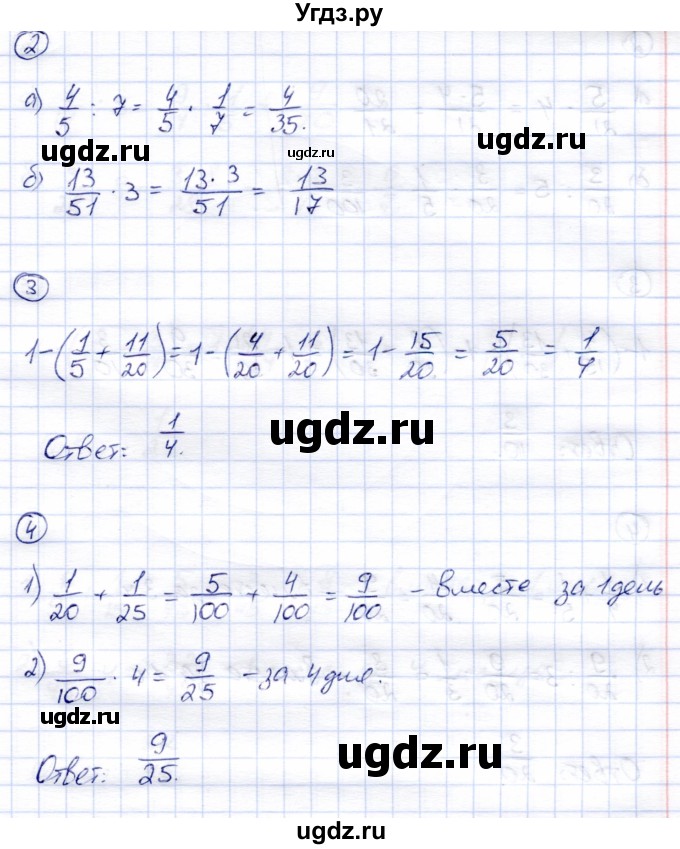 Угдз.ру
2
а) 4/5 : 7 = 4/5 · 1/7 = 4/35.
ugdz.ru
ugdz.ru
б) 13/51 · 3 = 13·3/51 = 13/17
3
1-(1/5 + 11/20) = 1-(4/20 + 11/20) = 1- 15/20 = 5/20 = 1/4
Ответ: 1/4.
ugdz.ru
ugdz.ru
4
1) 1/20 + 1/25 = 5/100 + 4/100 = 9/100 - вместе за 1 день
2) 9/100 · 4 = 9/25 - за 4 дня.
ugdz.ru
Ответ: 9/25.
ugdz.ru
ugdz.ru